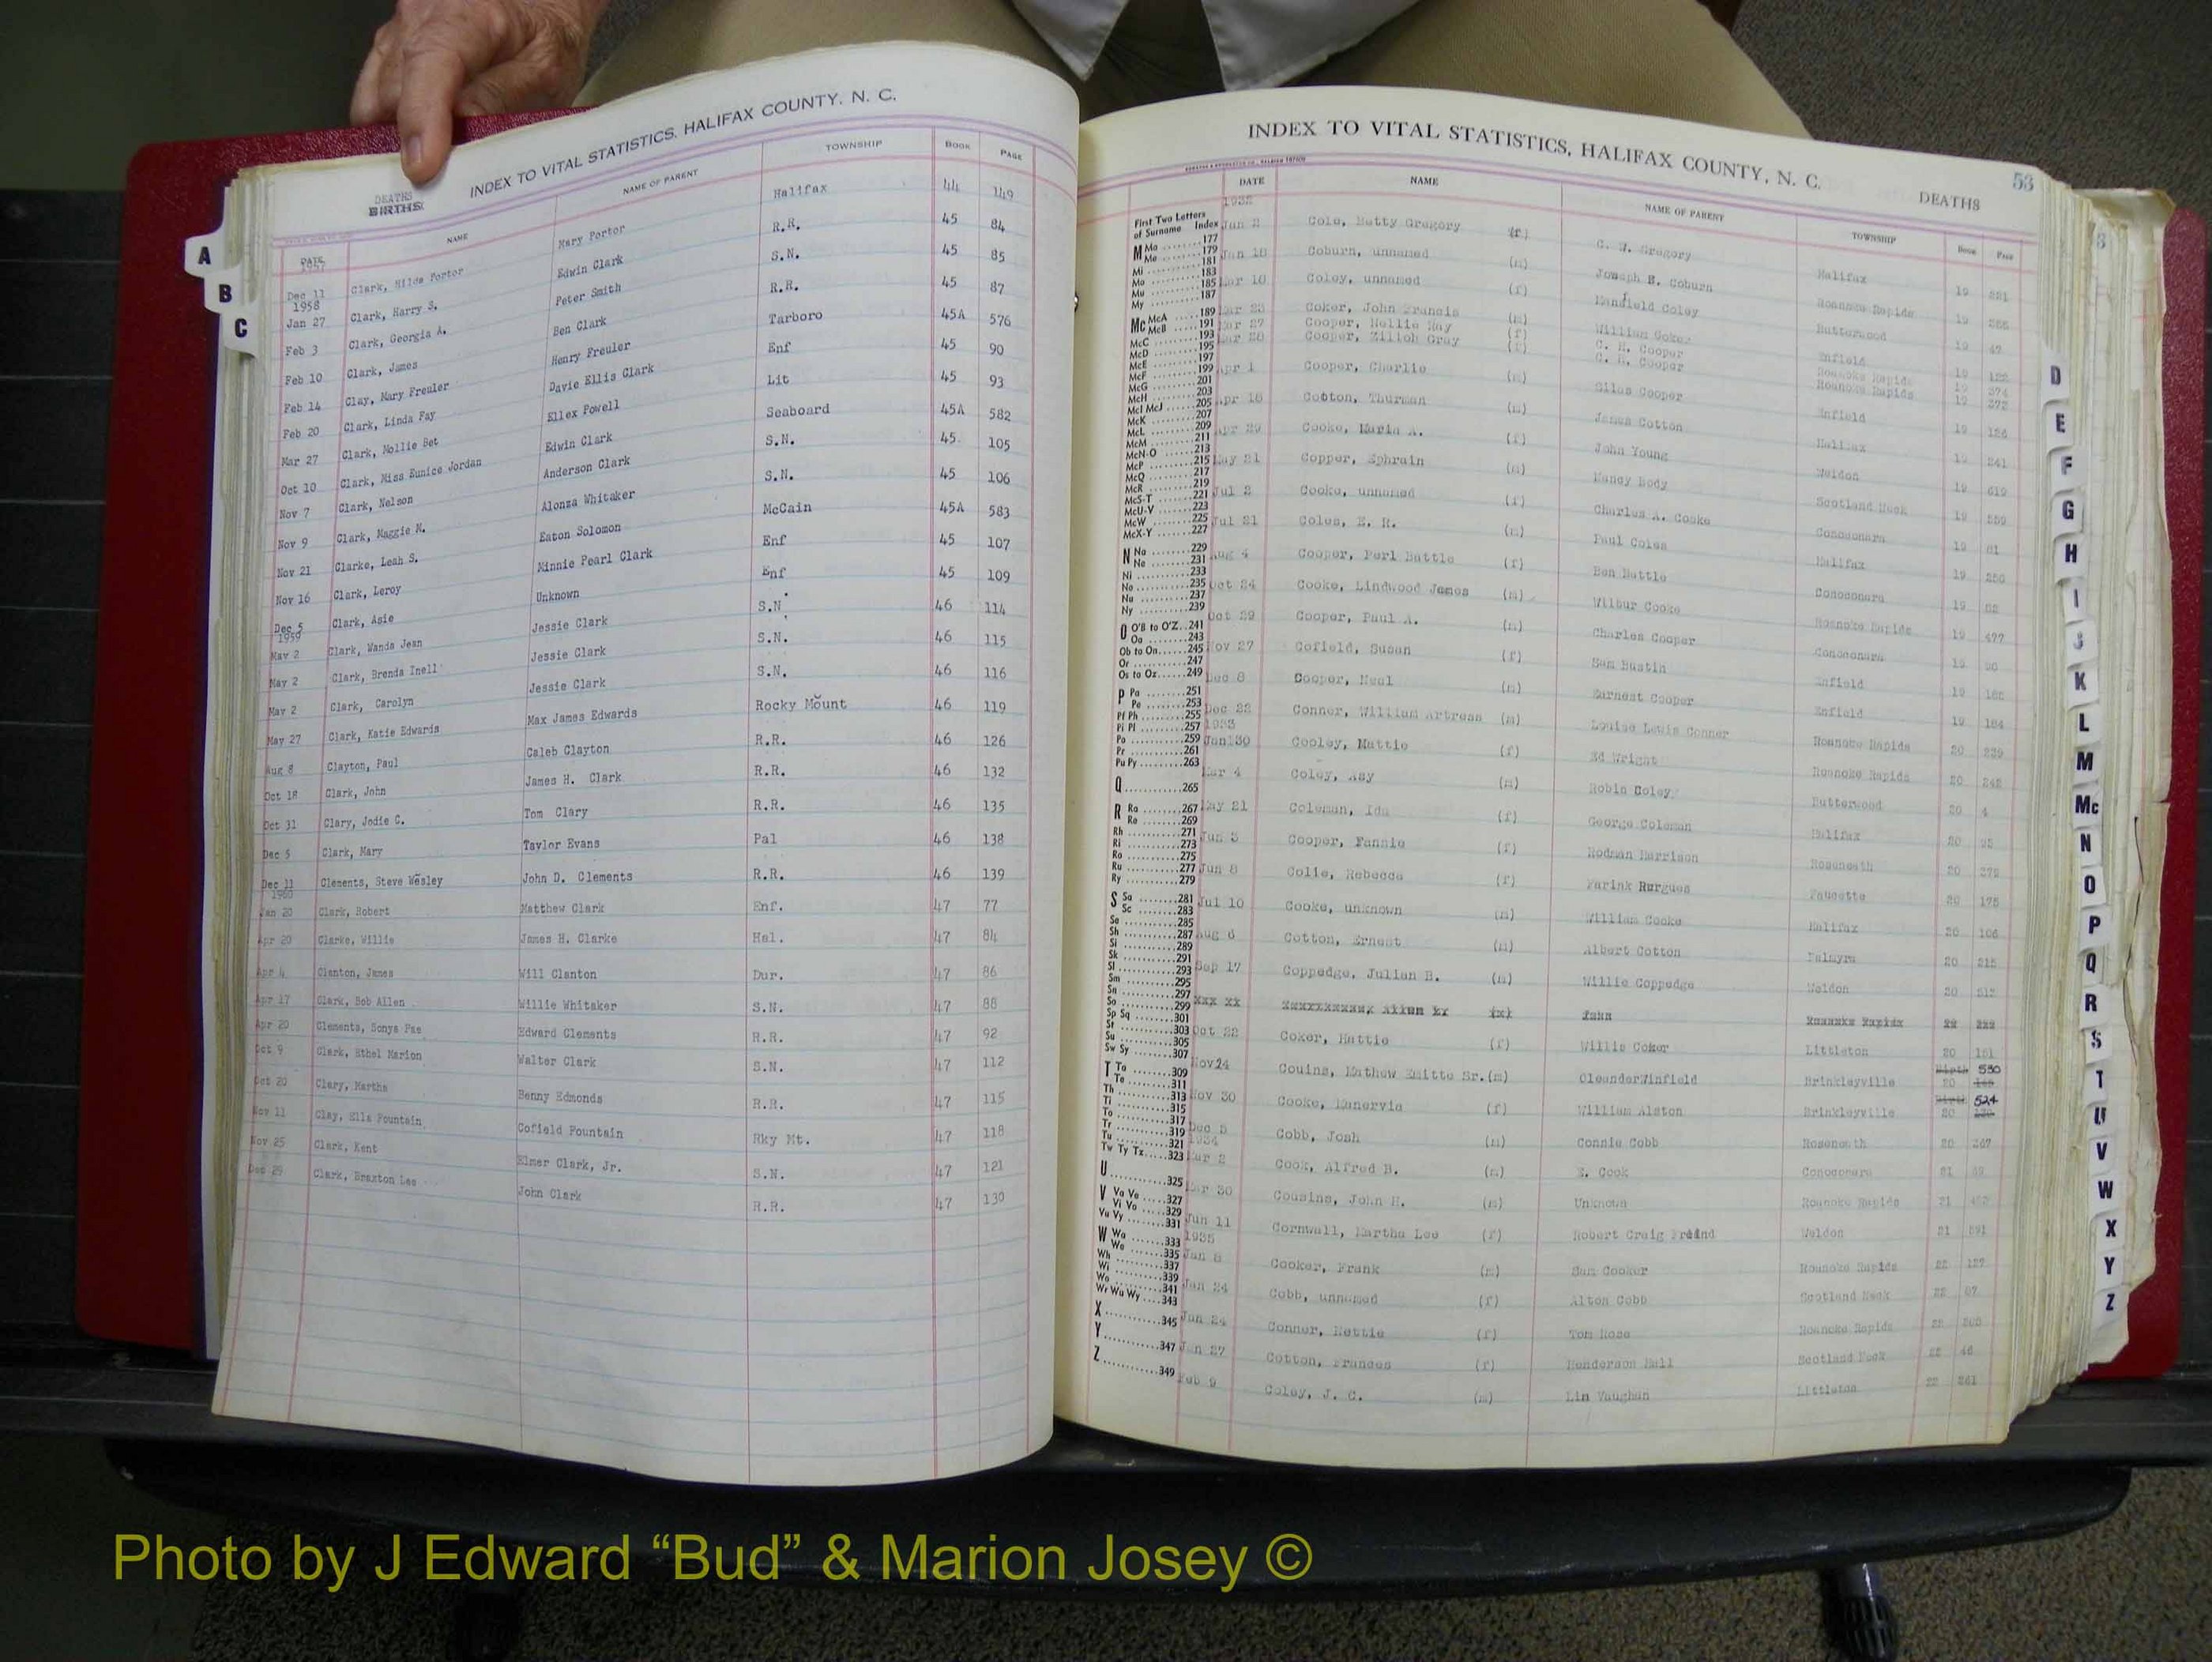 INDEX TO VITAL STATISTICS, HALIFAX COUNTY, N. C.
DEATHS
BIRTHS
DATE NAME NAME OF PARENT TOWNSHIP BOOK PAGE
1957
Dec 11 Clark, Hilda Portor Mary Portor Halifax 44 149
1958
Jan 27 Clark, Harry S. Edwin Clark R.R. 45 84
Feb 3 Clark, Georgia A. Peter Smith S.N. 45 85
Feb 10 Clark, James Ben Clark R.R. 45 87
Feb 14 Clay, Mary Freuler Henry Freuler Tarboro 45A 576
Feb 20 Clark, Linda Fay Davie Ellis Clark Enf 45 90
Mar 27 Clark, Mollie Bet Ellex Powell Lit 45 93
Oct 10 Clark, Miss Eunice Jordan Edwin Clark Seaboard 45A 582
Nov 7 Clark, Nelson Anderson Clark S.N. 45 105
Nov 9 Clark, Maggie M. Alonza Whitaker S.N. 45 106
Nov 21 Clarke, Leah S. Eaton Solomon McCain 45A 583
Nov 16 Clark, Leroy Minnie Pearl Clark Enf 45 107
Dec 5 Clark, Asie Unknown Enf 45 109
1959
May 2 Clark, Wanda Jean Jessie Clark S.N. 46 114
May 2 Clark, Brenda Inell Jessie Clark S.N. 46 115
May 2 Clark, Carolyn Jessie Clark S.N. 46 116
May 27 Clark, Katie Edwards Max James Edwards Rocky Mount 46 119
Aug 8 Clayton, Paul Caleb Clayton R.R. 46 126
Oct 18 Clark, John James H. Clark R.R. 46 132
Oct 31 Clary, Jodie C. Tom Clary R.R. 46 135
Dec 5 Clark, Mary Taylor Evans Pal 46 138
Dec 11 Clements, Steve Wesley John D. Clements R.R. 46 139
1960
Jan 20 Clark, Robert Matthew Clark Enf. 47 77
Apr 20 Clarke, Willie James H. Clarke Hal. 47 84
Apr 4 Clanton, James Will Clanton Dur. 47 86
Apr 17 Clark, Bob Allen Willie Whitaker S.N. 47 88
Apr 20 Clements, Sonya Fae Edward Clements R.R. 47 92
Oct 9 Clark, Ethel Marion Walter Clark S.N. 47 112
Oct 20 Clary, Martha Benny Edmonds R.R. 47 115
Nov 11 Clay, Ella Fountain Cofield Fountain Rky Mt. 47 118
Nov 25 Clark, Kent Elmer Clark, Jr. S.N. 47 121
Dec 29 Clark, Braxton Lee John Clark R.R. 47 130
A
B
C
INDEX TO VITAL STATISTICS, HALIFAX COUNTY, N. C.
DEATHS
53
DATE NAME NAME OF PARENT TOWNSHIP Book Page
First Two Letters
of Surname Index
M Ma 177
Me 179
Mi 181
Mo 183
Mu 185
My 187
Mc McA 189
McB 191
McC 193
McD 195
McE 197
McF 199
McG 201
McH 203
McI McJ 205
McK 207
McL 209
McM 211
McN-O 213
McP 215
McQ 217
McR 219
McS-T 221
McU-V 223
McW 225
McX-Y 227
N Na 229
Ne 231
Ni 233
No 235
Nu 237
Ny 239
O O'B to O'Z 241
Oa 243
Ob to On 245
Or 247
Os to Oz 249
P Pa 251
Pe 253
Pf Ph 255
Pi Pl 257
Po 259
Pr 261
Pu Py 263
Q 265
R Ra 267
Re 269
Rh 271
Ri 273
Ro 275
Ru 277
Ry 279
S Sa 281
Sc 283
Se 285
Sh 287
Si 289
Sk 291
Sl 293
Sm 295
Sn 297
So 299
Sp Sq 301
St 303
Su 305
Sw Sy 307
T Ta 309
Te 311
Th 313
Ti 315
To 317
Tr 319
Tu 321
Tw Ty Tz 323
U 325
V Va Ve 327
Vi Vo 329
Vu Vy 331
W Wa 333
We 335
Wh 337
Wi 339
Wo 341
Wr Wu Wy 343
X 345
Y 347
Z 349
1932
Jan 2 Cole, Betty Gregory (f) C. W. Gregory Halifax 19
Jan 18 Coburn, unnamed (m) Joseph E. Coburn Roanoke Rapids 19
Mar 16 Coley, unnamed (f) Manfield Coley Butterwood 19 42
Mar 23 Coker, John Francis (m) William Coker Enfield 19
Mar 27 Cooper, Nellie May (f) C. H. Cooper Roanoke Rapids 19 374
Mar 28 Cooper, Zilloh Gray (f) C. H. Cooper Roanoke Rapids 19
Apr 1 Cooper, Charlie (m) Silas Cooper Enfield 19 126
Apr 16 Cotton, Thurman (m) James Cotton Halifax 19 241
Apr 29 Cooke, Maria A. (f) John Young Weldon 19 619
May 21 Copper, Ephrain (m) Nancy Body Scotland Neck 19
Jul 2 Cooke, unnamed (f) Charles A. Cooke Conoconara 19 81
Jul 21 Coles, E. R. (m) Paul Coles Halifax 19
Aug 4 Cooper, Perl Battle (f) Ben Battle Conoconara 19
Oct 24 Cooke, Lindwood James (m) Wilbur Cooke Roanoke Rapids 19 477
Oct 29 Cooper, Paul A. (m) Charles Cooper Conoconara 19 90
Nov 27 Cofield, Susan (f) Sam Bustin Enfield 19
Dec 8 Cooper, Neal (m) Earnest Cooper Enfield 19 184
Dec 22 Conner, William Artress (m) Louise Lewis Conner Roanoke Rapids 20 239
1933
Jan 30 Cooley, Mattie (f) Ed Wright Roanoke Rapids 20 242
Mar 4 Coley, Asy (m) Robin Coley Butterwood 20 4
May 21 Coleman, Ida (f) George Coleman Halifax 20
Jun 3 Cooper, Fannie (f) Rodman Harrison Roseneath 20
Jun 8 Colie, Rebecca (f) Farink Burgues Faucette 20 175
Jul 10 Cooke, unknown (m) William Cooke Halifax 20 106
Aug 6 Cotton, Ernest (m) Albert Cotton Palmyra 20 215
Sep 17 Coppedge, Julian B. (m) Willie Coppedge Weldon 20
Oct 22 Coker, Hattie (f) Willie Coker Littleton 20 151
Nov 24 Couins, Mathew Emitte Sr. (m) Oleander Winfield Brinkleyville 20 530
Nov 30 Cooke, Manervia (f) William Alston Brinkleyville 20 524
Dec 5 Cobb, Josh (m) Connie Cobb Roseneath 20 267
1934
Mar 2 Cook, Alfred B. (m) E. Cook Conoconara 21
Mar 30 Cousins, John H. (m) Unknown Roanoke Rapids 21
Jun 11 Cornwall, Martha Lee (f) Robert Craig Freind Weldon 21 591
1935
Jan 8 Cooker, Frank (m) Sam Cooker Roanoke Rapids 22
Jan 24 Cobb, unnamed (f) Alton Cobb Scotland Neck 22 67
Jan 24 Conner, Nettie (f) Tom Rose Roanoke Rapids 22
Jan 27 Cotton, Frances (f) Henderson Hall Scotland Neck 22 46
Feb 9 Coley, J. C. (m) Lin Vaughan Littleton 22 261
D
E
F
G
H
I
J
K
L
M
Mc
N
O
P
Q
R
S
T
U
V
W
X
Y
Z
Photo by J Edward “Bud” & Marion Josey ©